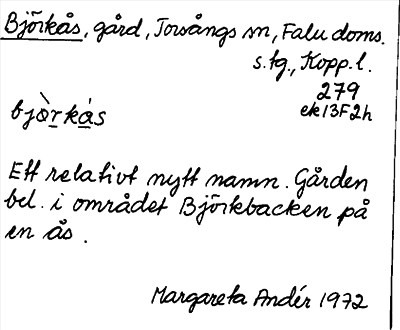 Björkås, gård, Torsångs sn, Falu doms.
s. tg., Kopp. l.
279
ek 13F2h
bjòrkás
Ett relativt nytt namn. Gården
bel. i området Björkbacken på
en ås.
Margareta Andér 1972